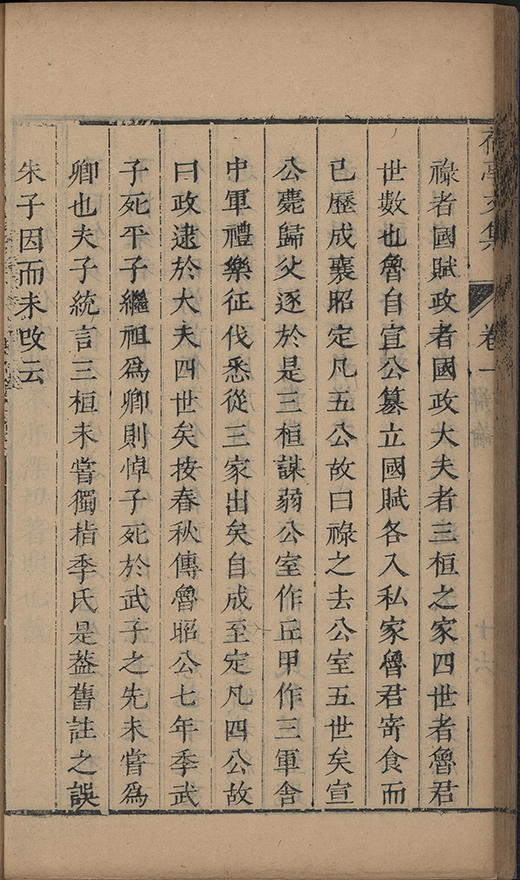 文集
卷一
祿者國賦政者國政大夫者三桓之家四世者魯君
世數也魯自宣公篡立國賦各入私家魯君寄食而
已歷成襄昭定凡五公故曰祿之去公室五世矣宣
公薨歸父逐於是三桓謀弱公室作丘甲作三軍舍
中軍禮樂征伐悉從三家出矣自成至定凡四公故
曰政逮於大夫四世矣按春秋傳魯昭公七年季武
子死平子繼祖為卿則悼子死於武子之先未嘗為
卿也夫子統言三桓未嘗獨指季氏是葢舊註之誤
朱子因而未攺云